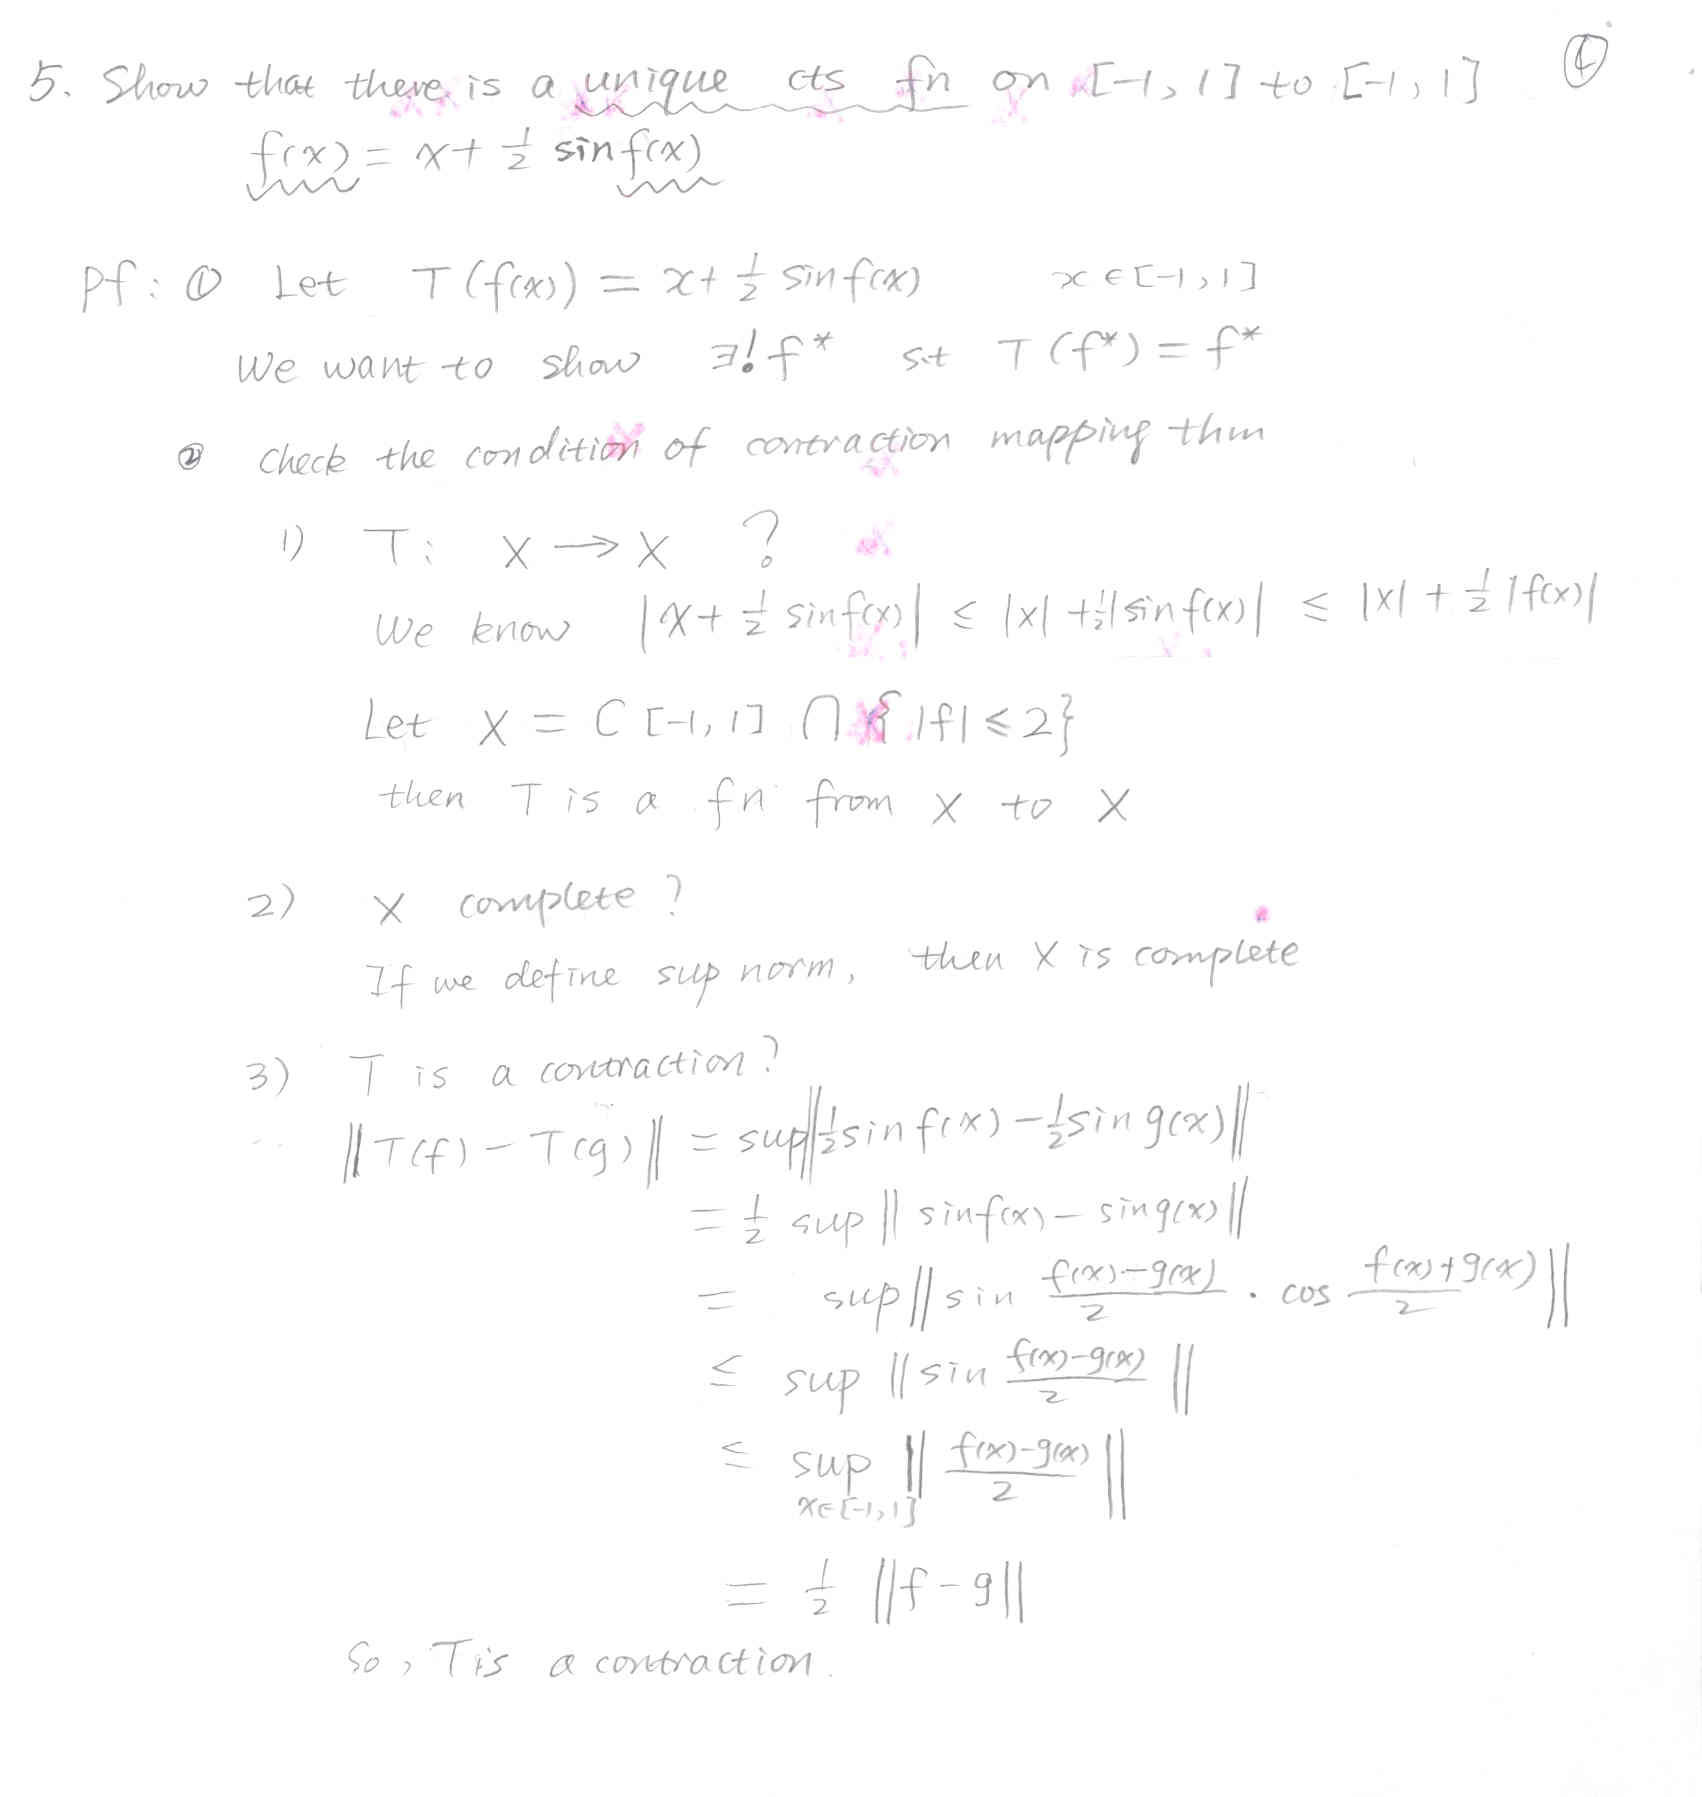 5. Show that there is a unique cts fn on [-1, 1] to [-1, 1]
f(x) = x + 1/2 sin f(x)
pf: ① Let T(f(x)) = x + 1/2 sin f(x) x ∈ [-1, 1]
We want to show ∃! f* s.t T(f*) = f*
② check the condition of contraction mapping thm
1) T: X → X ?
We know |x + 1/2 sin f(x)| ≤ |x| + 1/2 |sin f(x)| ≤ |x| + 1/2 |f(x)|
Let X = C[-1, 1] ∩ { |f| ≤ 2}
then T is a fn from X to X
2) X complete ?
If we define sup norm, then X is complete
3) T is a contraction?
||T(f) - T(g)|| = sup||1/2 sin f(x) - 1/2 sin g(x)||
= 1/2 sup || sin f(x) - sin g(x)||
= sup || sin (f(x)-g(x))/2 · cos (f(x)+g(x))/2 ||
≤ sup || sin (f(x)-g(x))/2 ||
≤ sup x∈[-1,1] || (f(x)-g(x))/2 ||
= 1/2 ||f - g||
So, T is a contraction.